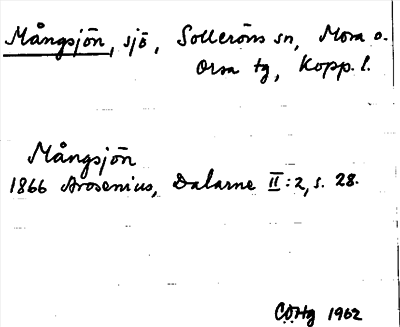 Mångsjön, sjö, Solleröns sn, Mora o.
Orsa tg, Kopp. l.
Mångsjön
1866 Arosenius, Dalarne II:2, s. 28.
CÖHg 1962